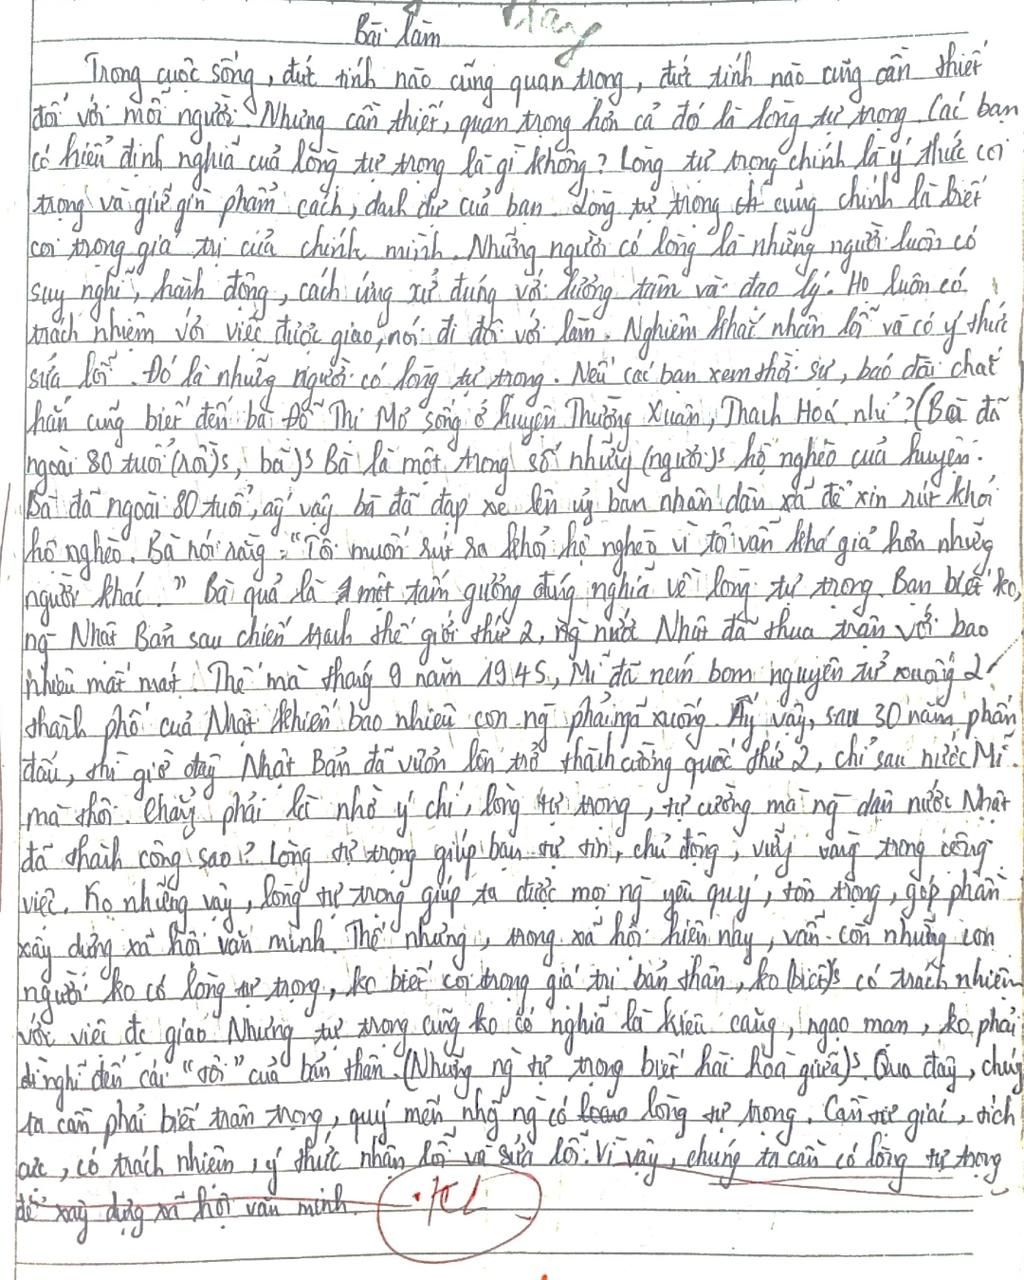 Trang
Bài làm
Trong cuộc sống, đức tính nào cũng quan trọng, đức tính nào cũng cần thiết
đối với mỗi người. Nhưng cần thiết, quan trọng hơn cả đó là lòng tự trọng. Các bạn
có hiểu định nghĩa của lòng tự trọng là gì không? Lòng tự trọng chính là ý thức coi
trọng và giữ gìn phẩm cách, danh dự của bạn. Lòng tự trọng cũng chính là biết
coi trọng giá trị của chính mình. Những người có lòng là những người luôn có
suy nghĩ, hành động, cách ứng xử đúng với lương tâm và đạo lý. Họ luôn có
trách nhiệm với việc được giao, nói đi đôi với làm. Nghiêm khắc nhận lỗi và có ý thức
sửa lỗi. Đó là những người có lòng tự trọng. Nếu các bạn xem thời sự, báo đài chắc
hẳn cũng biết đến bà Đỗ Thị Mơ sống ở huyện Thường Xuân, Thanh Hoá nhỉ? (Bà đã
ngoài 80 tuổi (rồi)s, bà)s Bà là một trong số những (người)s hộ nghèo của huyện.
Bà đã ngoài 80 tuổi, ấy vậy bà đã đạp xe lên ủy ban nhân dân xã để xin rút khỏi
hộ nghèo. Bà nói rằng: "Tôi muốn rút ra khỏi hộ nghèo vì tôi vẫn khá giả hơn những
người khác." Bà quả là 1 một tấm gương đúng nghĩa về lòng tự trọng. Bạn biết ko,
ng Nhật Bản sau chiến tranh thế giới thứ 2, ng nước Nhật đã thua trận với bao
nhiêu mất mát. Thế mà tháng 8 năm 1945, Mĩ đã ném bom nguyên tử xuống 2
thành phố của Nhật khiến bao nhiêu con ng phải ngã xuống. Ấy vậy, sau 30 năm phấn
đấu, thì giờ đây Nhật Bản đã vươn lên trở thành cường quốc thứ 2, chỉ sau nước Mĩ
mà thôi. Chẳng phải là nhờ ý chí, lòng tự trọng, tự cường mà ng dân nước Nhật
đã thành công sao? Lòng tự trọng giúp bạn tự tin, chủ động, vững vàng trong công
việc. Ko những vậy, lòng tự trọng giúp ta được mọi ng yêu quý, tôn trọng, góp phần
xây dựng xã hội văn minh. Thế nhưng, trong xã hội hiện nay, vẫn còn những con
người ko có lòng tự trọng, ko biết coi trọng giá trị bản thân, ko (biết)s có trách nhiệm
với việc đc giao. Nhưng tự trọng cũng ko có nghĩa là kiêu căng, ngạo mạn, ko phải
chỉ nghĩ đến cái "tôi" của bản thân. (Những ng tự trọng biết hài hoà giữa)s Qua đây, chúng
ta cần phải biết trân trọng, quý mến nhg ng có lòng tự trọng. Cần tự giác, tích
cực, có trách nhiệm, ý thức nhận lỗi và sửa lỗi. Vì vậy, chúng ta cần có lòng tự trọng
để xây dựng xã hội văn minh.